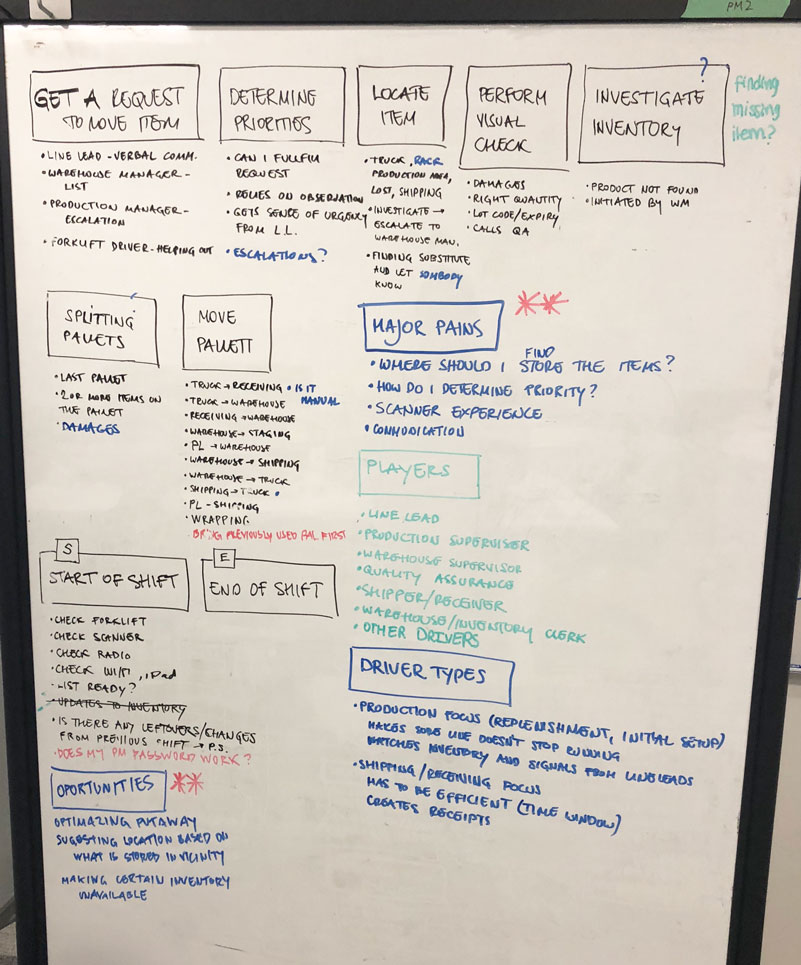 PM2
GET A REQUEST
TO MOVE ITEM
• LINE LEAD - VERBAL COMM.
• WAREHOUSE MANAGER -
LIST
• PRODUCTION MANAGER -
ESCALATION
• FORKLIFT DRIVER - HELPING OUT
DETERMINE
PRIORITIES
• CAN I FULLFILL
REQUEST
• RELIES ON OBSERVATION
• GETS SENSE OF URGENCY
FROM L.L.
• ESCALATIONS?
LOCATE
ITEM
• TRUCK, RACK
PRODUCTION AREA,
LOST, SHIPPING
• INVESTIGATE →
ESCALATE TO
WAREHOUSE MAN.
• FINDING SUBSTITUTE
AND LET SOMBODY
KNOW
PERFORM
VISUAL
CHECK
• DAMAGES
• RIGHT QUANTITY
• LOT CODE/EXPIRY
• CALLS QA
?
INVESTIGATE
INVENTORY
• PRODUCT NOT FOUND
• INITIATED BY WM
finding
missing
item?
SPLITTING
PALLETS
• LAST PALLET
• 2 OR MORE ITEMS ON
THE PALLET
• DAMAGES
MOVE
PALLETT
• TRUCK → RECEIVING • IS IT
• TRUCK → WAREHOUSE MANUAL
• RECEIVING → WAREHOUSE
• WAREHOUSE → STAGING
• PL → WAREHOUSE
• WAREHOUSE → SHIPPING
• WAREHOUSE → TRUCK
• SHIPPING → TRUCK •
• PL - SHIPPING
• WRAPPING
PREVIOUSLY USED PAL FIRST
MAJOR PAINS **
• WHERE SHOULD I FIND STORE THE ITEMS?
• HOW DO I DETERMINE PRIORITY?
• SCANNER EXPERIENCE
• COMMUDICATION
PLAYERS
• LINE LEAD
• PRODUCTION SUPERVISER
• WAREHOUSE SUPERVISOR
• QUALITY ASSURANCE
• SHIPPER/RECEIVER
• WAREHOUSE/INVENTORY CLERK
• OTHER DRIVERS
S
START OF SHIFT
• CHECK FORKLIFT
• CHECK SCANNER
• CHECK RADIO
• CHECK WIFI, iPad
• LIST READY?
• UPDATES TO INVENTORY
• IS THERE ANY LEFTOVERS/CHANGES
FROM PREVIOUS SHIFT → P.S.
• DOES MY PM PASSWORD WORK?
E
END OF SHIFT
DRIVER TYPES
• PRODUCTION FOCUS (REPLENISHMENT, INITIAL SETUP)
MAKES SURE LINE DOESN'T STOP RUNNING
WATCHES INVENTORY AND SIGNALS FROM LINE LEADS
• SHIPPING/RECEIVING FOCUS
HAS TO BE EFFICIENT (TIME WINDOW)
CREATES RECEIPTS
OPORTUNITIES **
OPTIMAZING PUTAWAY
SUGESTING LOCATION BASED ON
WHAT IS STORED IN VICINITY
MAKING CERTAIN INVENTORY
UNAVAILABLE